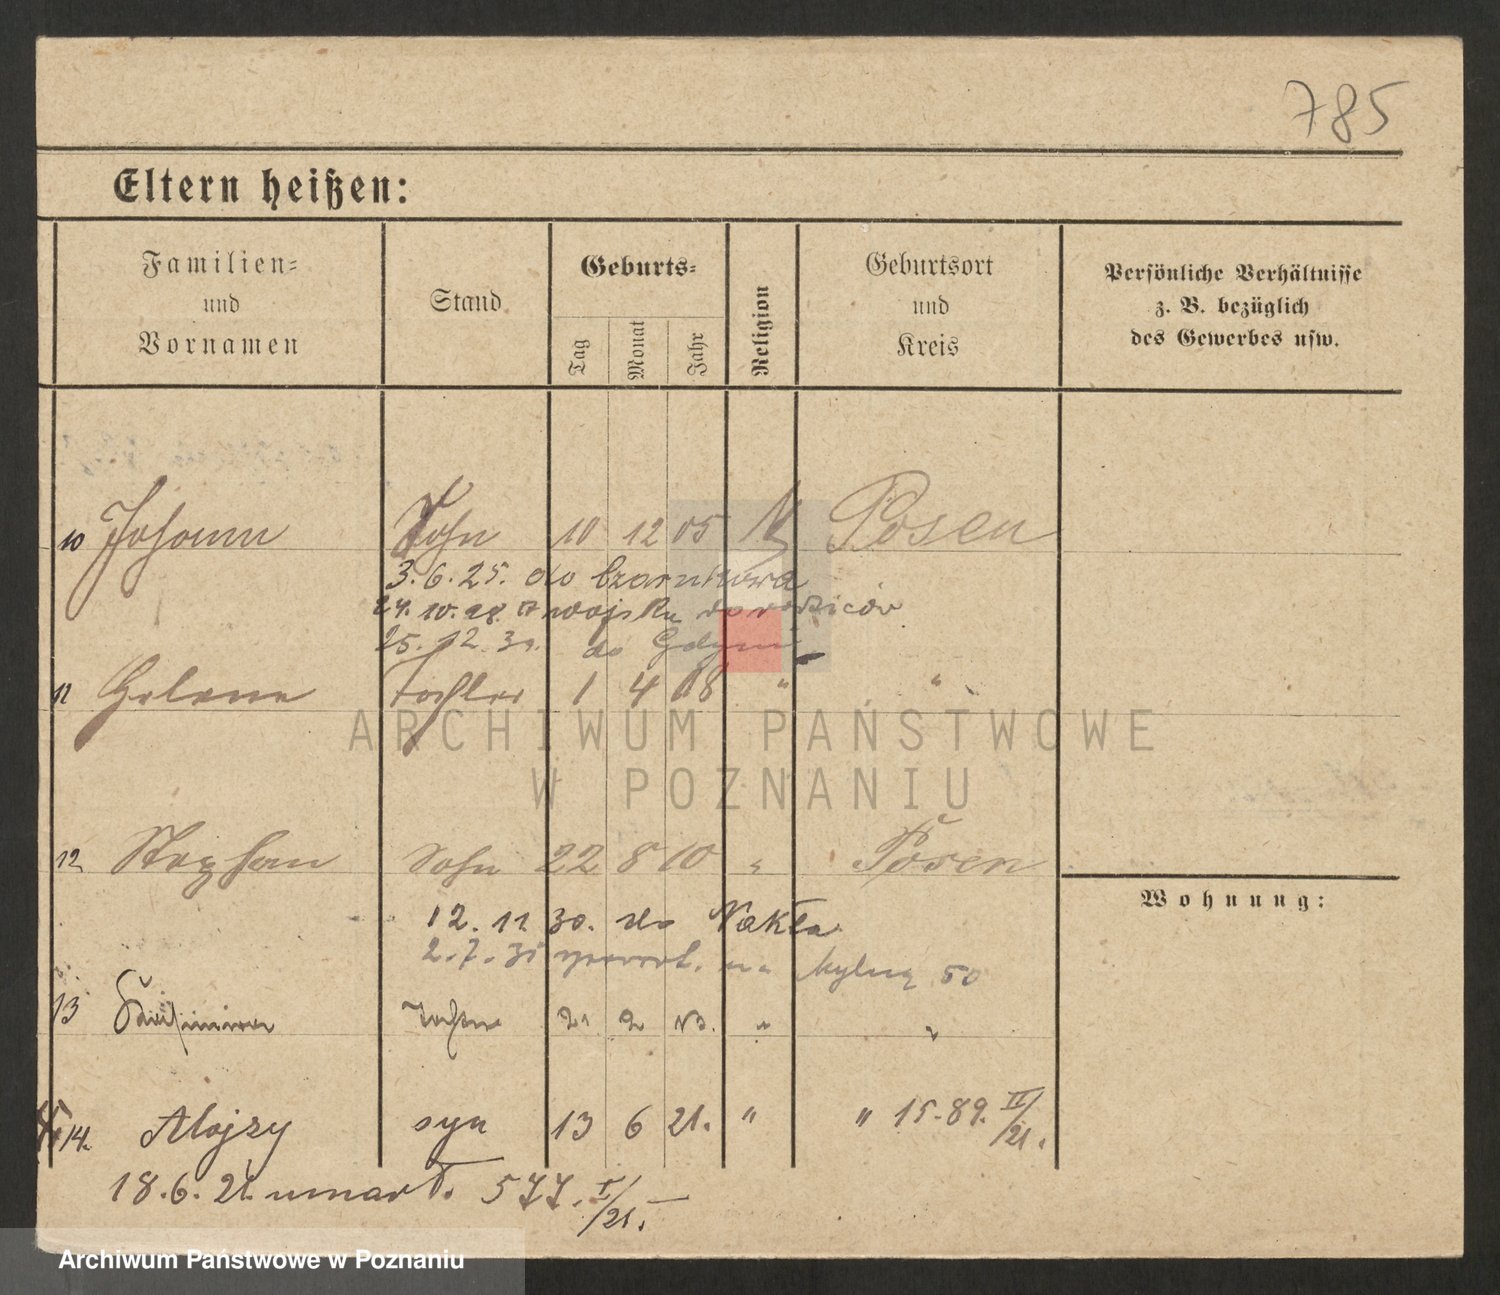 785
Eltern heißen:
Familien= und Vornamen
Stand
Geburts=
Tag
Monat
Jahr
Religion
Geburtsort und Kreis
Persönliche Verhältnisse
z. B. bezüglich
des Gewerbes usw.
10 Johann Sohn 10 12 05 Posen
3.6.25. do Czarnkowa
24.10.28. z wojska do rodziców
25.12.30. do Gdyni
11 Helene Tochter 1 4 08 " "
ARCHIWUM PAŃSTWOWE
W POZNANIU
12 Stephan Sohn 22 8 10 " Posen
Wohnung:
12.11.30. do Nakła
2.7.31 powrot. na 50
13 Tochter 2 " "
14. Alojzy syn 13 6 21. " " 15.89. II/21.
18.6.21. umarł. 577. I/21.
Archiwum Państwowe w Poznaniu